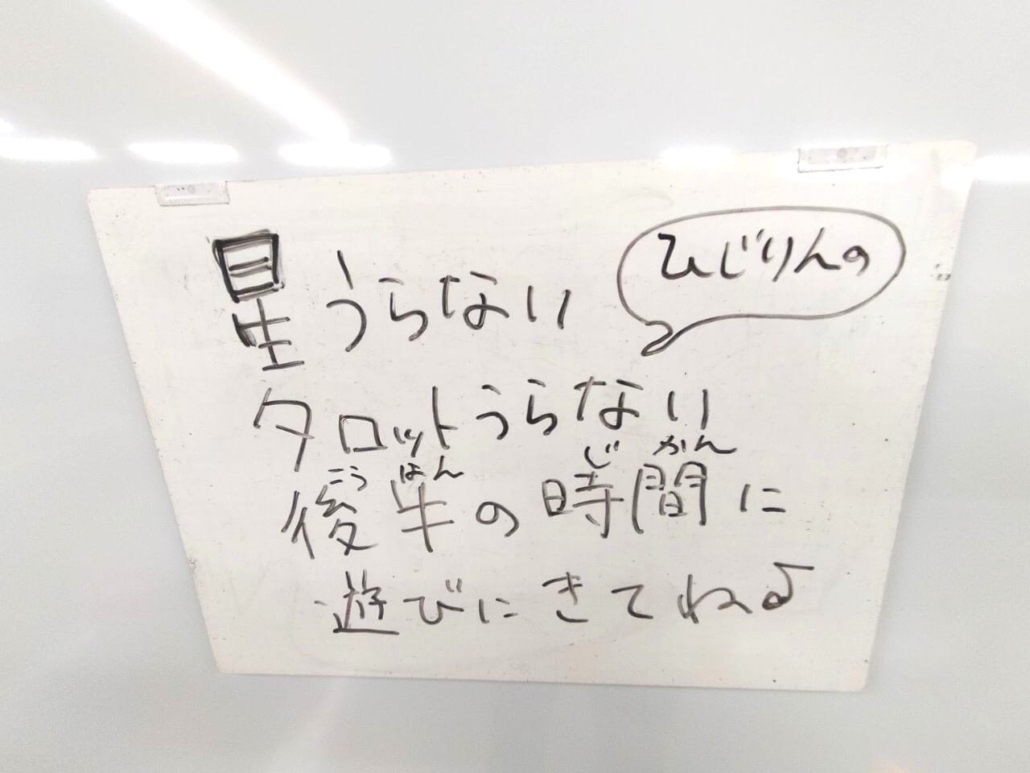 ひじりんの
星うらない
タロットうらない
こうはん じかん
後半の時間に
遊びにきてね♪